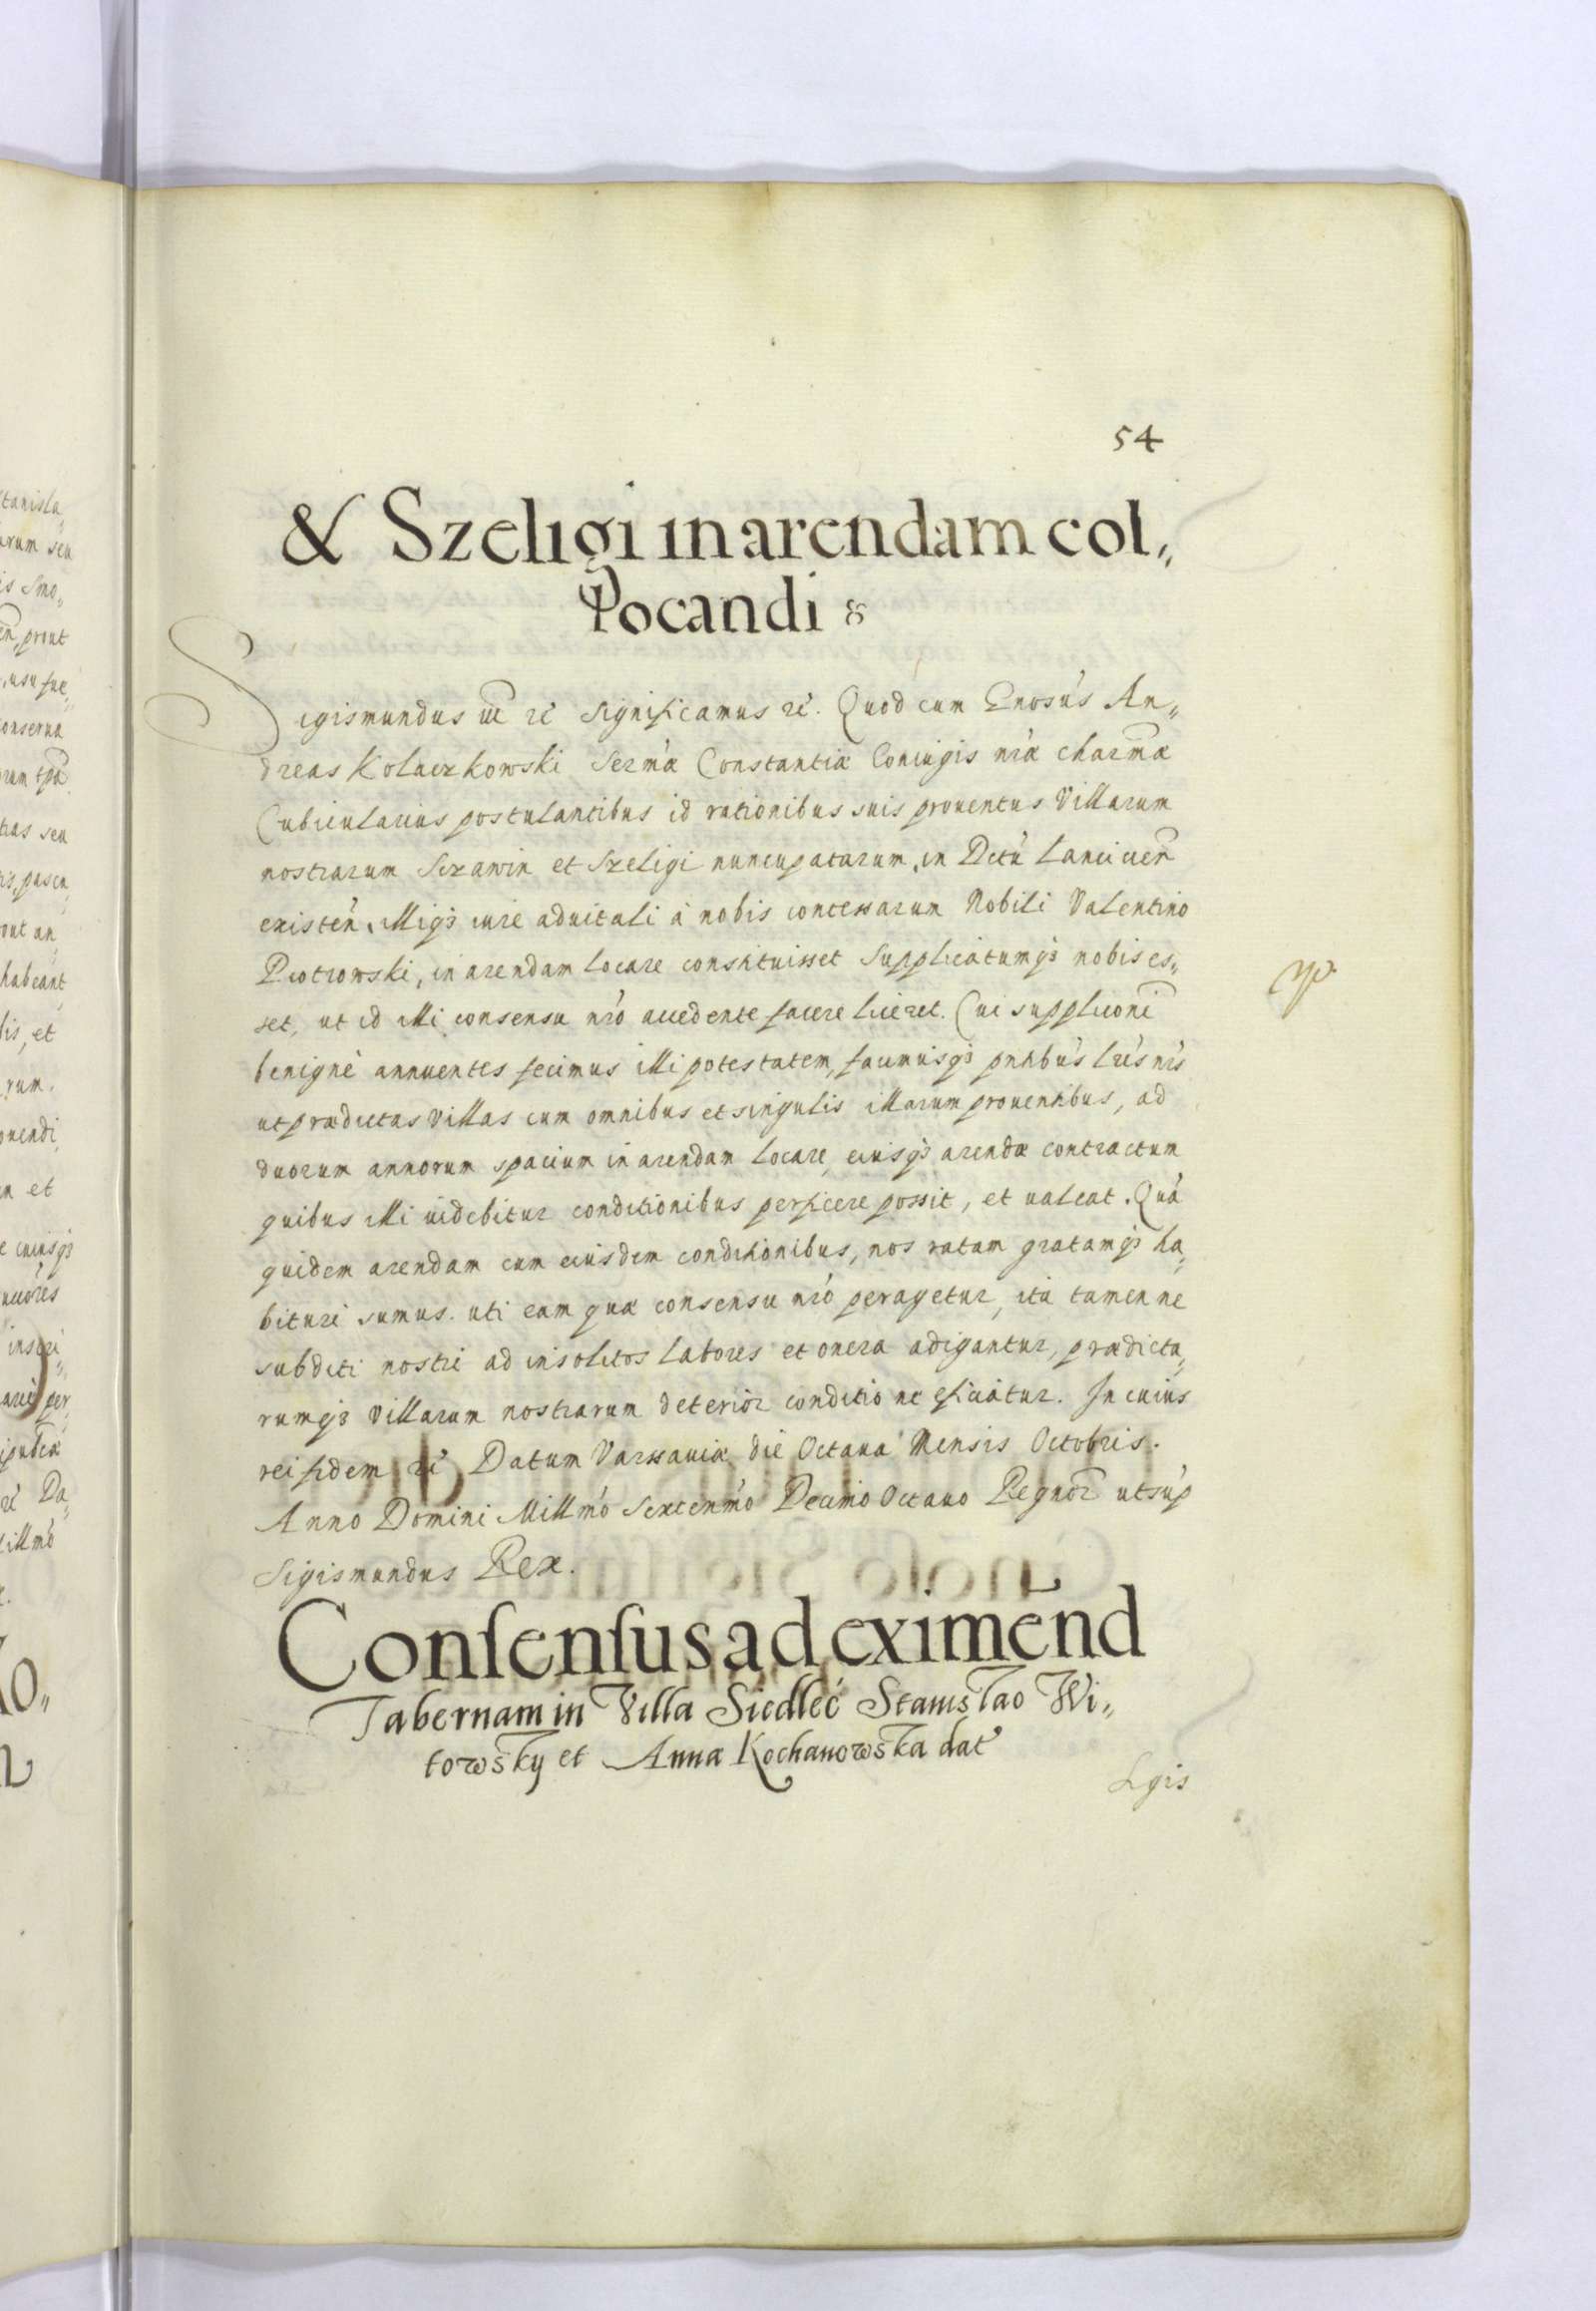 54
& Szeligi in arendam col„
locandi
Sigismundus iii rc Significamus rc. Quod cum Gnosus An„
dreas Kolaczkowski Sermæ Constantiæ Coniugis nræ charmæ
Cubicularius postulantibus id rationibus suis prouentus Villarum
nostrarum Sczawin et Szeligi nuncupatarum, in Dctu Lancicien
existen, illiq3 iure aduitali à nobis concessarum Nobili Valentino
Piotrowski, in arendam locare constituisset Supplicatumq3 nobis es„
set, ut id illi consensu nro accedente facere liceret. Cui supplicōni
benignè annuentes fecimus illi potestatem, facimusq3 pntibus lris nris
ut prædictas Villas cum omnibus et singulis illarum prouentibus, ad
duorum annorum spacium in arendam locare, eiusq3 arendæ contractum
quibus illi uidebitur conditionibus perficere possit, et ualeat. Quā
quidem arendam cum eiusdem conditionibus, nos ratam gratamq3 ha„
bituri sumus. uti eam quæ consensu nro peragetur, ita tamen ne
subditi nostri ad insolitos labores et onera adigantur, prædicta„
rumq3 Villarum nostrarum deterior conditio ne efficiatur. In cuius
rei fidem rc Datum Varssauiæ die Octaua Mensis Octobris.
Anno Domini Millmo Sexcenmo Decimo Octauo Regnor ut sup
Sigismundus Rex.
Consensus ad eximend
Tabernam in Villa Siedleć Stanislao Wi„
towsky et Anna Kochanowska dat